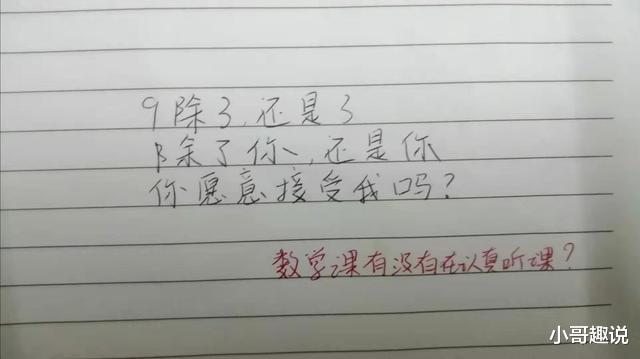 9除3,还是3
除了你,还是你
你愿意接受我吗?
数学课有没有在认真听课?
小哥趣说